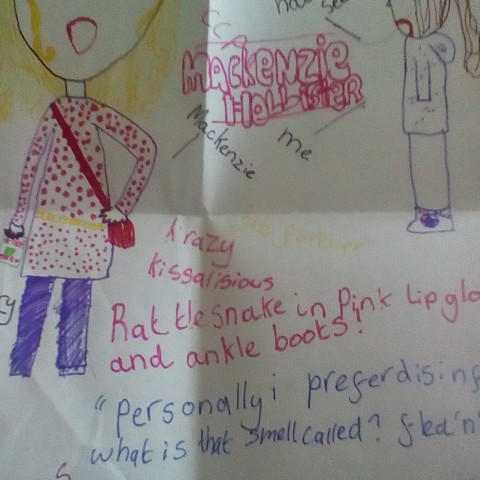 MACKENZIE
HOLLISTER
Mackenzie
me
krazy
kissalisious
forever
Rattlesnake in Pink lip glo
and ankle boots!
"personally i preferdising
what is that smell called? fled'n'